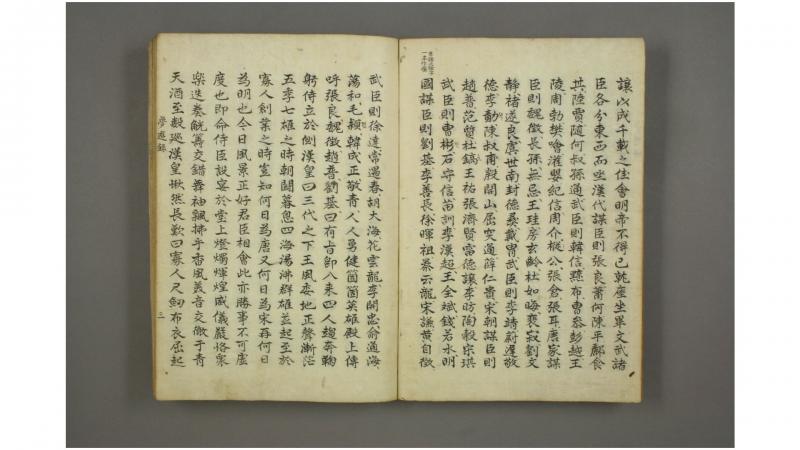 讓以成千載之佳會明帝不得已乾座坐畢文武諸
臣各分東西而坐漢代謀臣則張良蕭何陳平酈食
其陸賈隨何叔孫通武臣則韓信黥布曹參彭越王
陵周勃樊噲灌嬰紀信周介樅公張倉張耳唐家謀
臣則魏徵長孫無忌王珪房玄齡杜如晦裵寂劉文
靜褚遂良虞世南封德彛戴胄武臣則李靖尉遲敬
德李勣陳叔甫殷開山屈突通薛仁貴宋朝謀臣則
趙普范質杜鎬王祐張濟賢富德讓李昉陶穀宋琪
武臣則曹彬石守信苗訓李漢超王全斌錢若水明
國謀臣則劉基李善長徐暉祖綦云龍宋濂黃自徵
武臣則徐達常遇春胡大海花雲龍李開忠俞通海
蕩和毛穎韓成正敬青人人勇健箇箇英雄殿上傳
呼張良魏徵趙普劉基曰有旨卽入来四人趨奔鞠
躬侍立於側漢皇曰三代之下王風委地正聲漸茫
五季七雄之時朝鬪暮息四海湯沸群雄並起至於
寡人創業之時豈知何日為唐又何日為宋再何日
為明也今日風景正好君臣相會此亦勝事不可虛
度也即命侍臣設宴於堂上燈燭煇煌威儀嚴恪衆
樂迭奏觥籌交錯舞袖飄拂乎香風羙音交徹于青
天酒至數廵漢皇愀然長歎曰寡人尺釰布衣屈起
夢遊錄
三